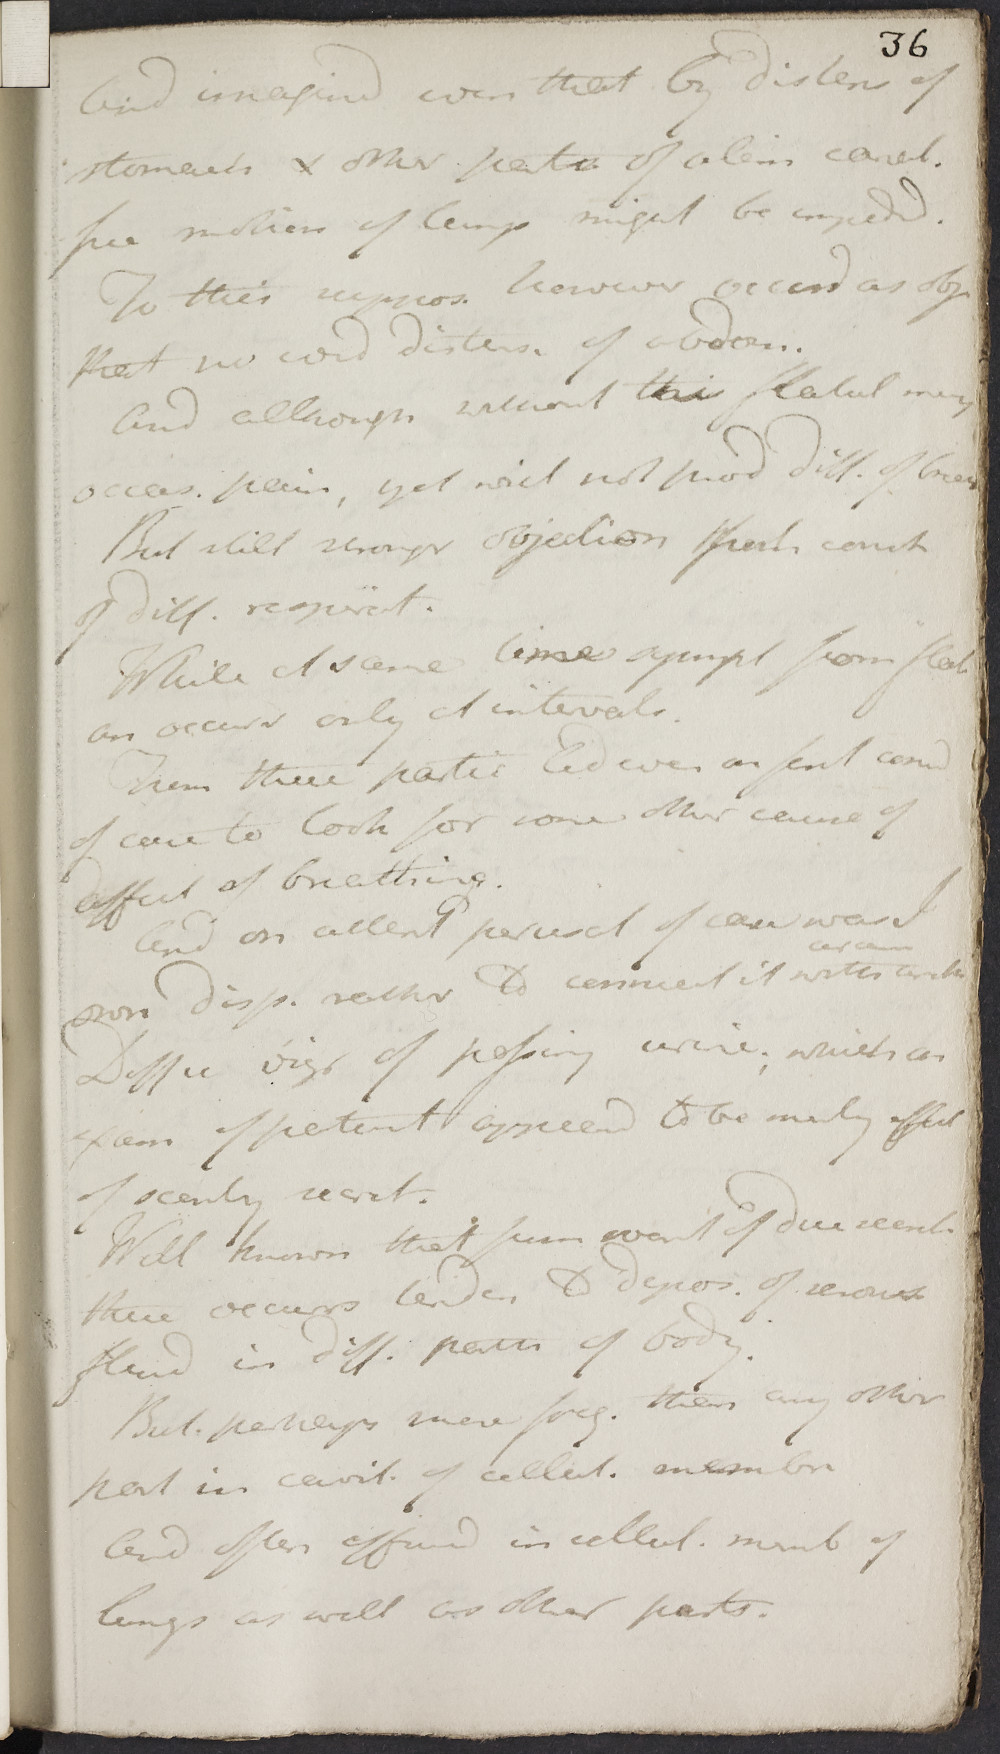 36
And imagind even that by distens of
stomach & other parts of alim canal.
free motion of lungs might be imped.
To this suppos. however occurd as obj
that no evid distens. of abdom.
And although without this flatul may
occas. pain, yet will not prod diff. of brea
But still stronger objection from const
of diff. respirat.
While at same time sympt from flat
an occurr only at intervals.
From these partic led even on first consid
of case to look for some other cause of
affect of breathing.
And on attent perusal of case was I
more disp. rather to connect it with
Diffic of passing urine, which on
exam of patient appeard to be merely effect
of scanty secret.
Well known that from want of due secret
there occurs tenden to depos. of serous
fluid in diff. parts of body.
But perhaps more freq. than any other
part in cavit. of cellul. membr
And often effused in cellul. memb of
lungs as well as other parts.